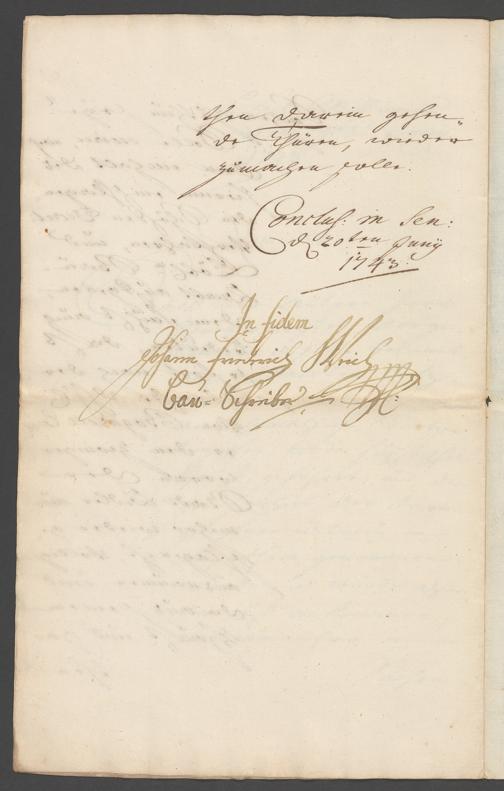 then darein gehen-
de Thüren, wieder
zumachen solle.
Conclus: in Sen:
d 20ten Juny
1743.
In fidem
Johann Friedrich
Bau-Schreiber